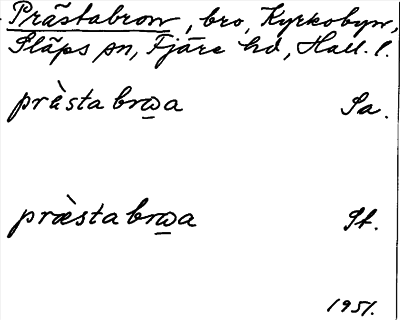 Prästabron, bro, Kyrkobyn,
Släps sn, Fjäre hd, Hall. l.
prä̀stabrɷ̲a Sa.
præ̀stabrɷ̲a St.
1951.